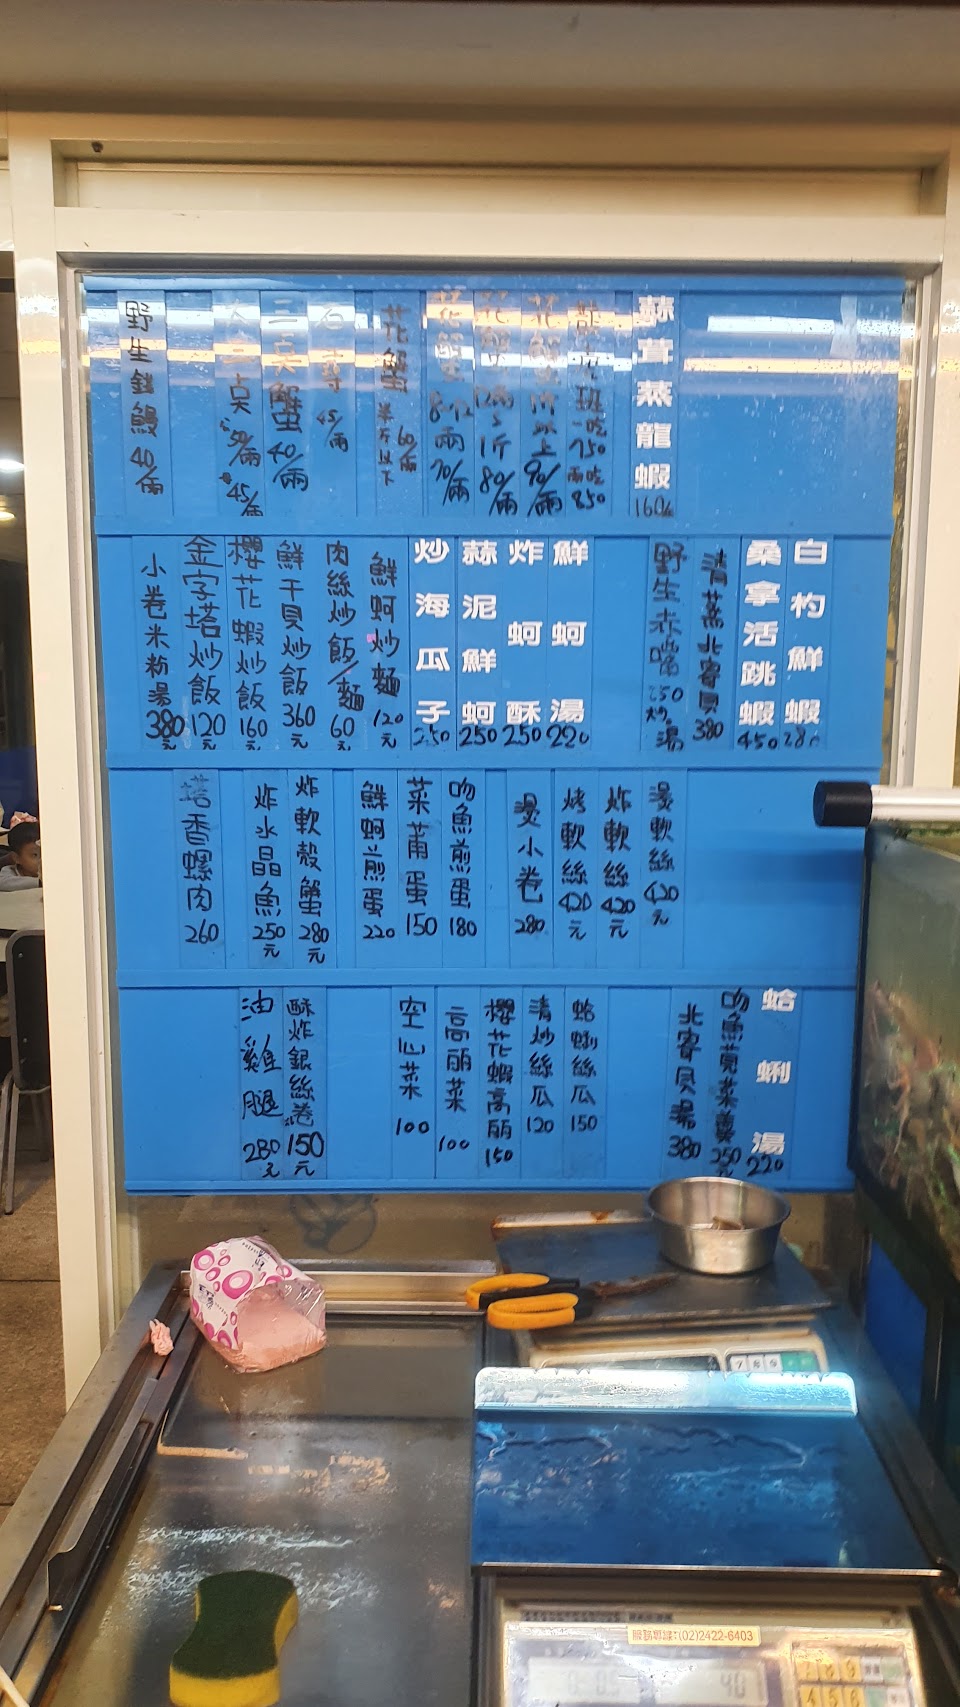 蒜茸蒸龍蝦 160
龍虎斑 一吃750 兩吃850
花蟹 1斤以上 90/兩
花蟹 12兩~1斤 80/兩
花蟹 8-12兩 70/兩
花蟹 半斤以下 60/兩
石 45/兩
三点蟹 40/兩
50/兩 45/兩
野生 鰻 40/兩
白灼鮮蝦 280
桑拿活跳蝦 450
清蒸北寄貝 380
野生赤嘴 250 炒。湯
鮮蚵湯 220
炸蚵酥 250
蒜泥鮮蚵 250
炒海瓜子 250
鮮蚵炒麵 120元
肉絲炒飯/麵 60元
鮮干貝炒飯 360元
櫻花蝦炒飯 160元
金字塔炒飯 120元
小卷米粉湯 380元
燙軟絲 420元
炸軟絲 420元
烤軟絲 420元
燙小卷 280
吻魚煎蛋 180
菜莆蛋 150
鮮蚵煎蛋 220
炸軟殼蟹 280元
炸水晶魚 250元
塔香螺肉 260
蛤蜊湯 220
吻魚莧菜羹 250元
北寄貝湯 380
蛤蜊絲瓜 150
清炒絲瓜 120
櫻花蝦高丽 150
高丽菜 100
空心菜 100
酥炸銀絲卷 150元
油雞腿 280元
7 8 9
服務專線:(02)2422-6403
40
7 8 9
4 5 6